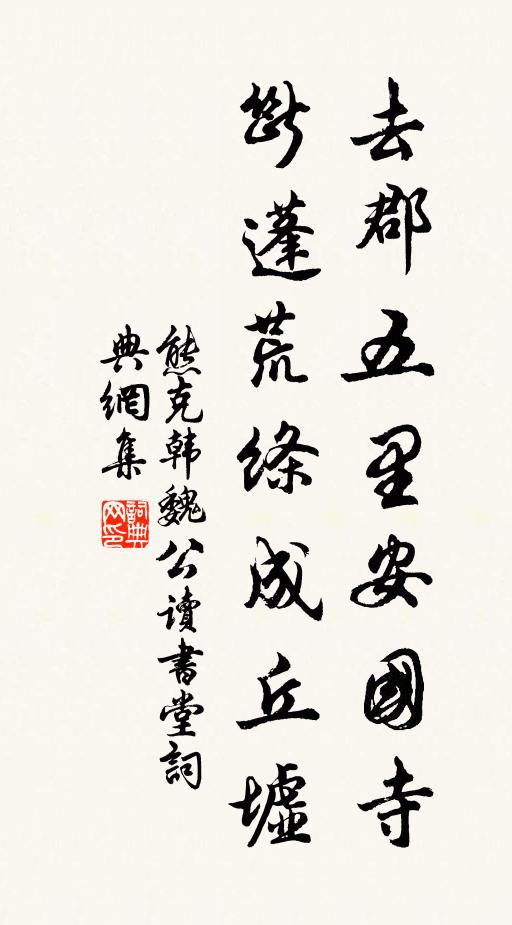 去郡五里安國寺
斷蓬荒絛成丘墟
熊克韩魏公讀書堂詞
典網集
詞典
网印